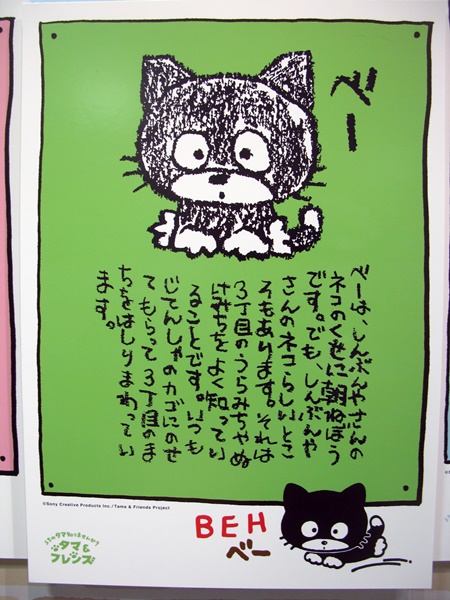 べー
べーは、しんぶんやさんの
ネコのくせに朝ねぼう
です。でも、しんぶんや
さんのネコらしいとこ
ろもあります。それは
3丁目のうらみちやぬ
けみちをよく知ってい
ることです。いつも
じてんしゃのカゴにのせ
てもらって3丁目のま
ちをはしりまわってい
ます。
©Sony Creative Products Inc./Tama & Friends Project
うちのタマ知りませんか?
タマ&
フレンズ
BEH
べー